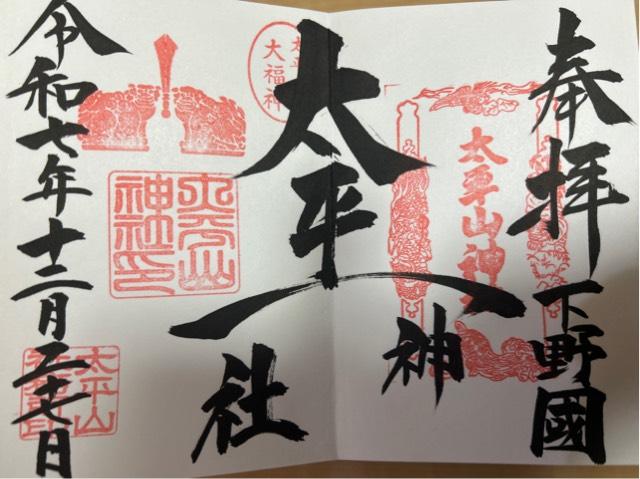 奉拝
下野國
太平山神社
太平山神社
大福神
太平山神社印
令和七年十二月二十七日
太平山